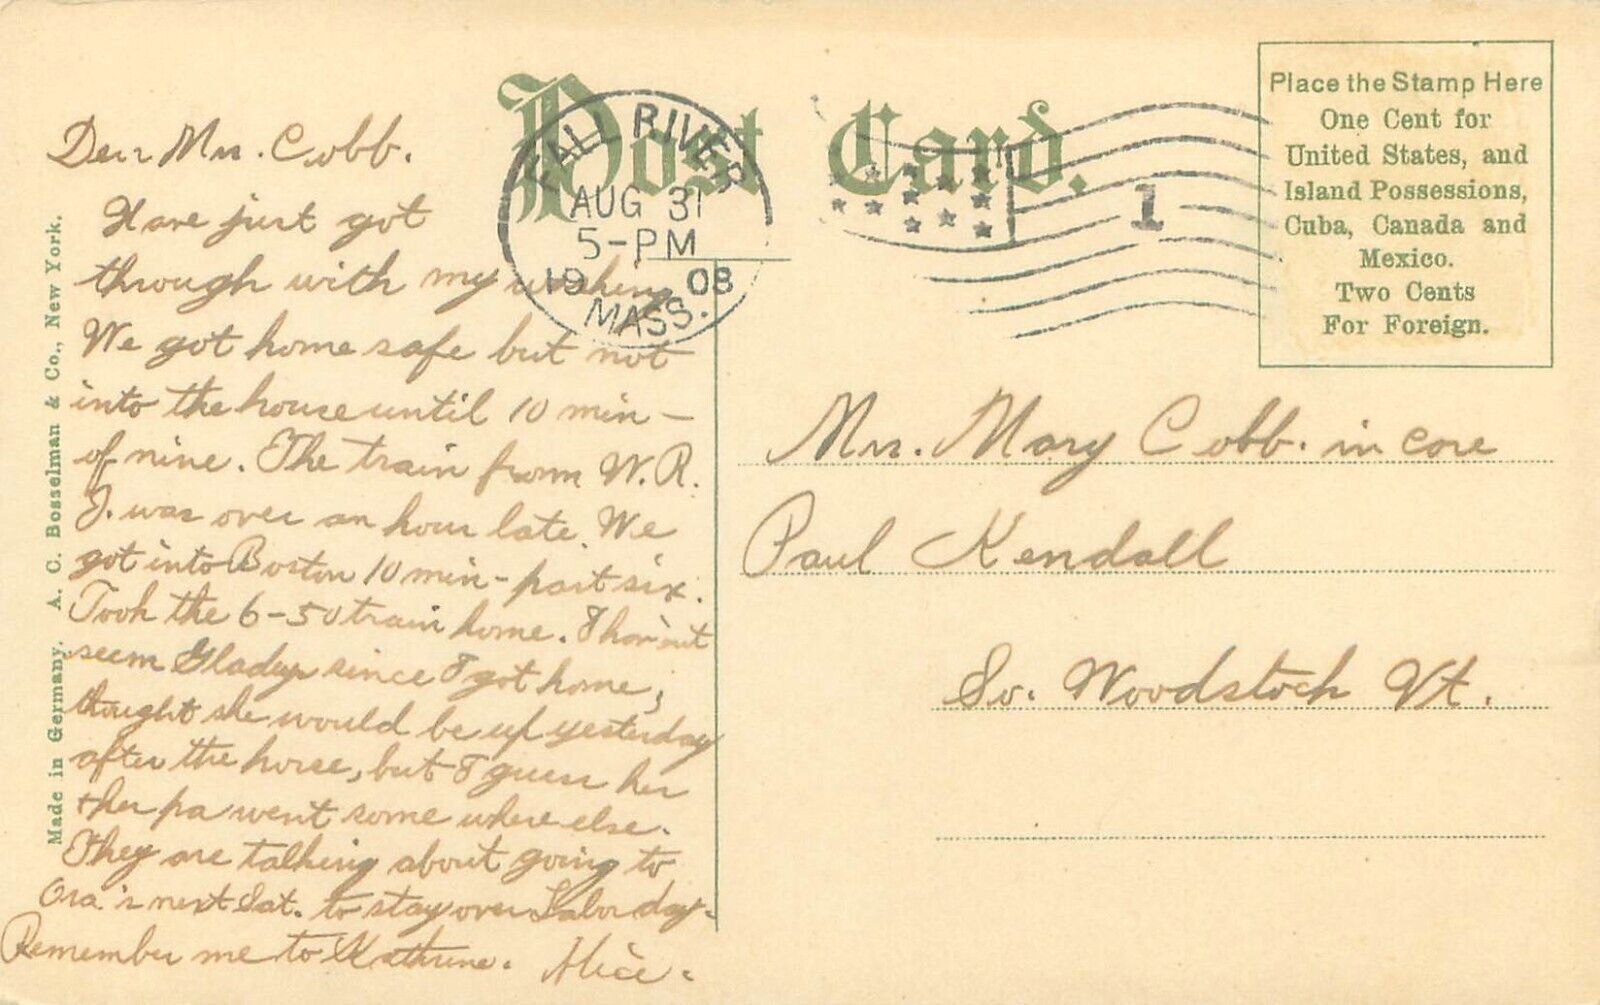 Post Card.
FALL RIVER
AUG 31
5-PM
1908
MASS.
1
Place the Stamp Here
One Cent for
United States, and
Island Possessions,
Cuba, Canada and
Mexico.
Two Cents
For Foreign.
Made in Germany. A. C. Bosselman & Co., New York.
Dear Mrs. Cobb.
Have just got
through with my washing
We got home safe but not
into the house until 10 min-
of nine. The train from W. R.
J. was over an hour late. We
got into Boston 10 min- past six.
Took the 6-50 train home. I hav'nt
seem Gladys since I got home,
thought she would be up yesterday
after the horse, but I guess her
+ her pa went some where else.
They are talking about going to
Ora's next Sat. to stay over Labor day.
Remember me to Kathrine. Alice.
Mrs. Mary Cobb. in care
Paul Kendall
So. Woodstock Vt.